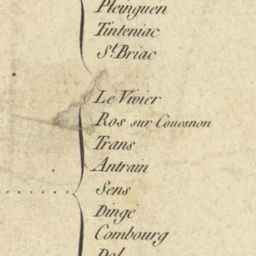 Pleinguen
Tinteniac
St. Briac
Le Vivier
Ros sur Couesnon
Trans
Antrain
Sens
Dinge
Combourg
Dol